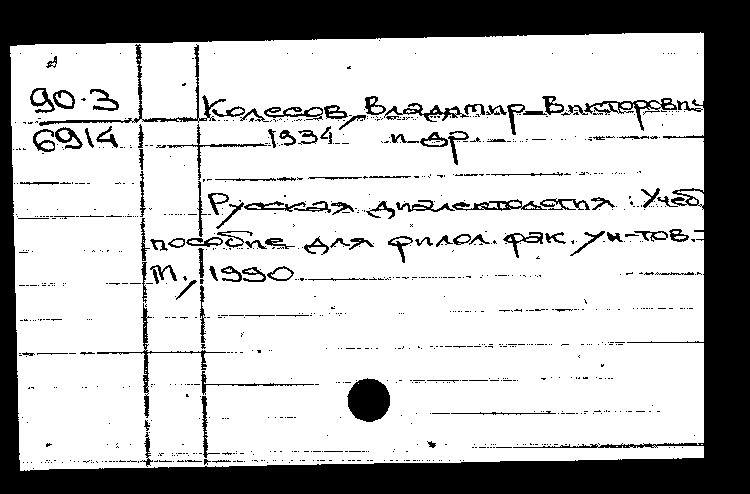 90.3
6914
Колесов, Владимир Викторович
1934 и др.
Русская диалектология : Учеб.
пособие для филол. фак. ун-тов.-
М., 1990.